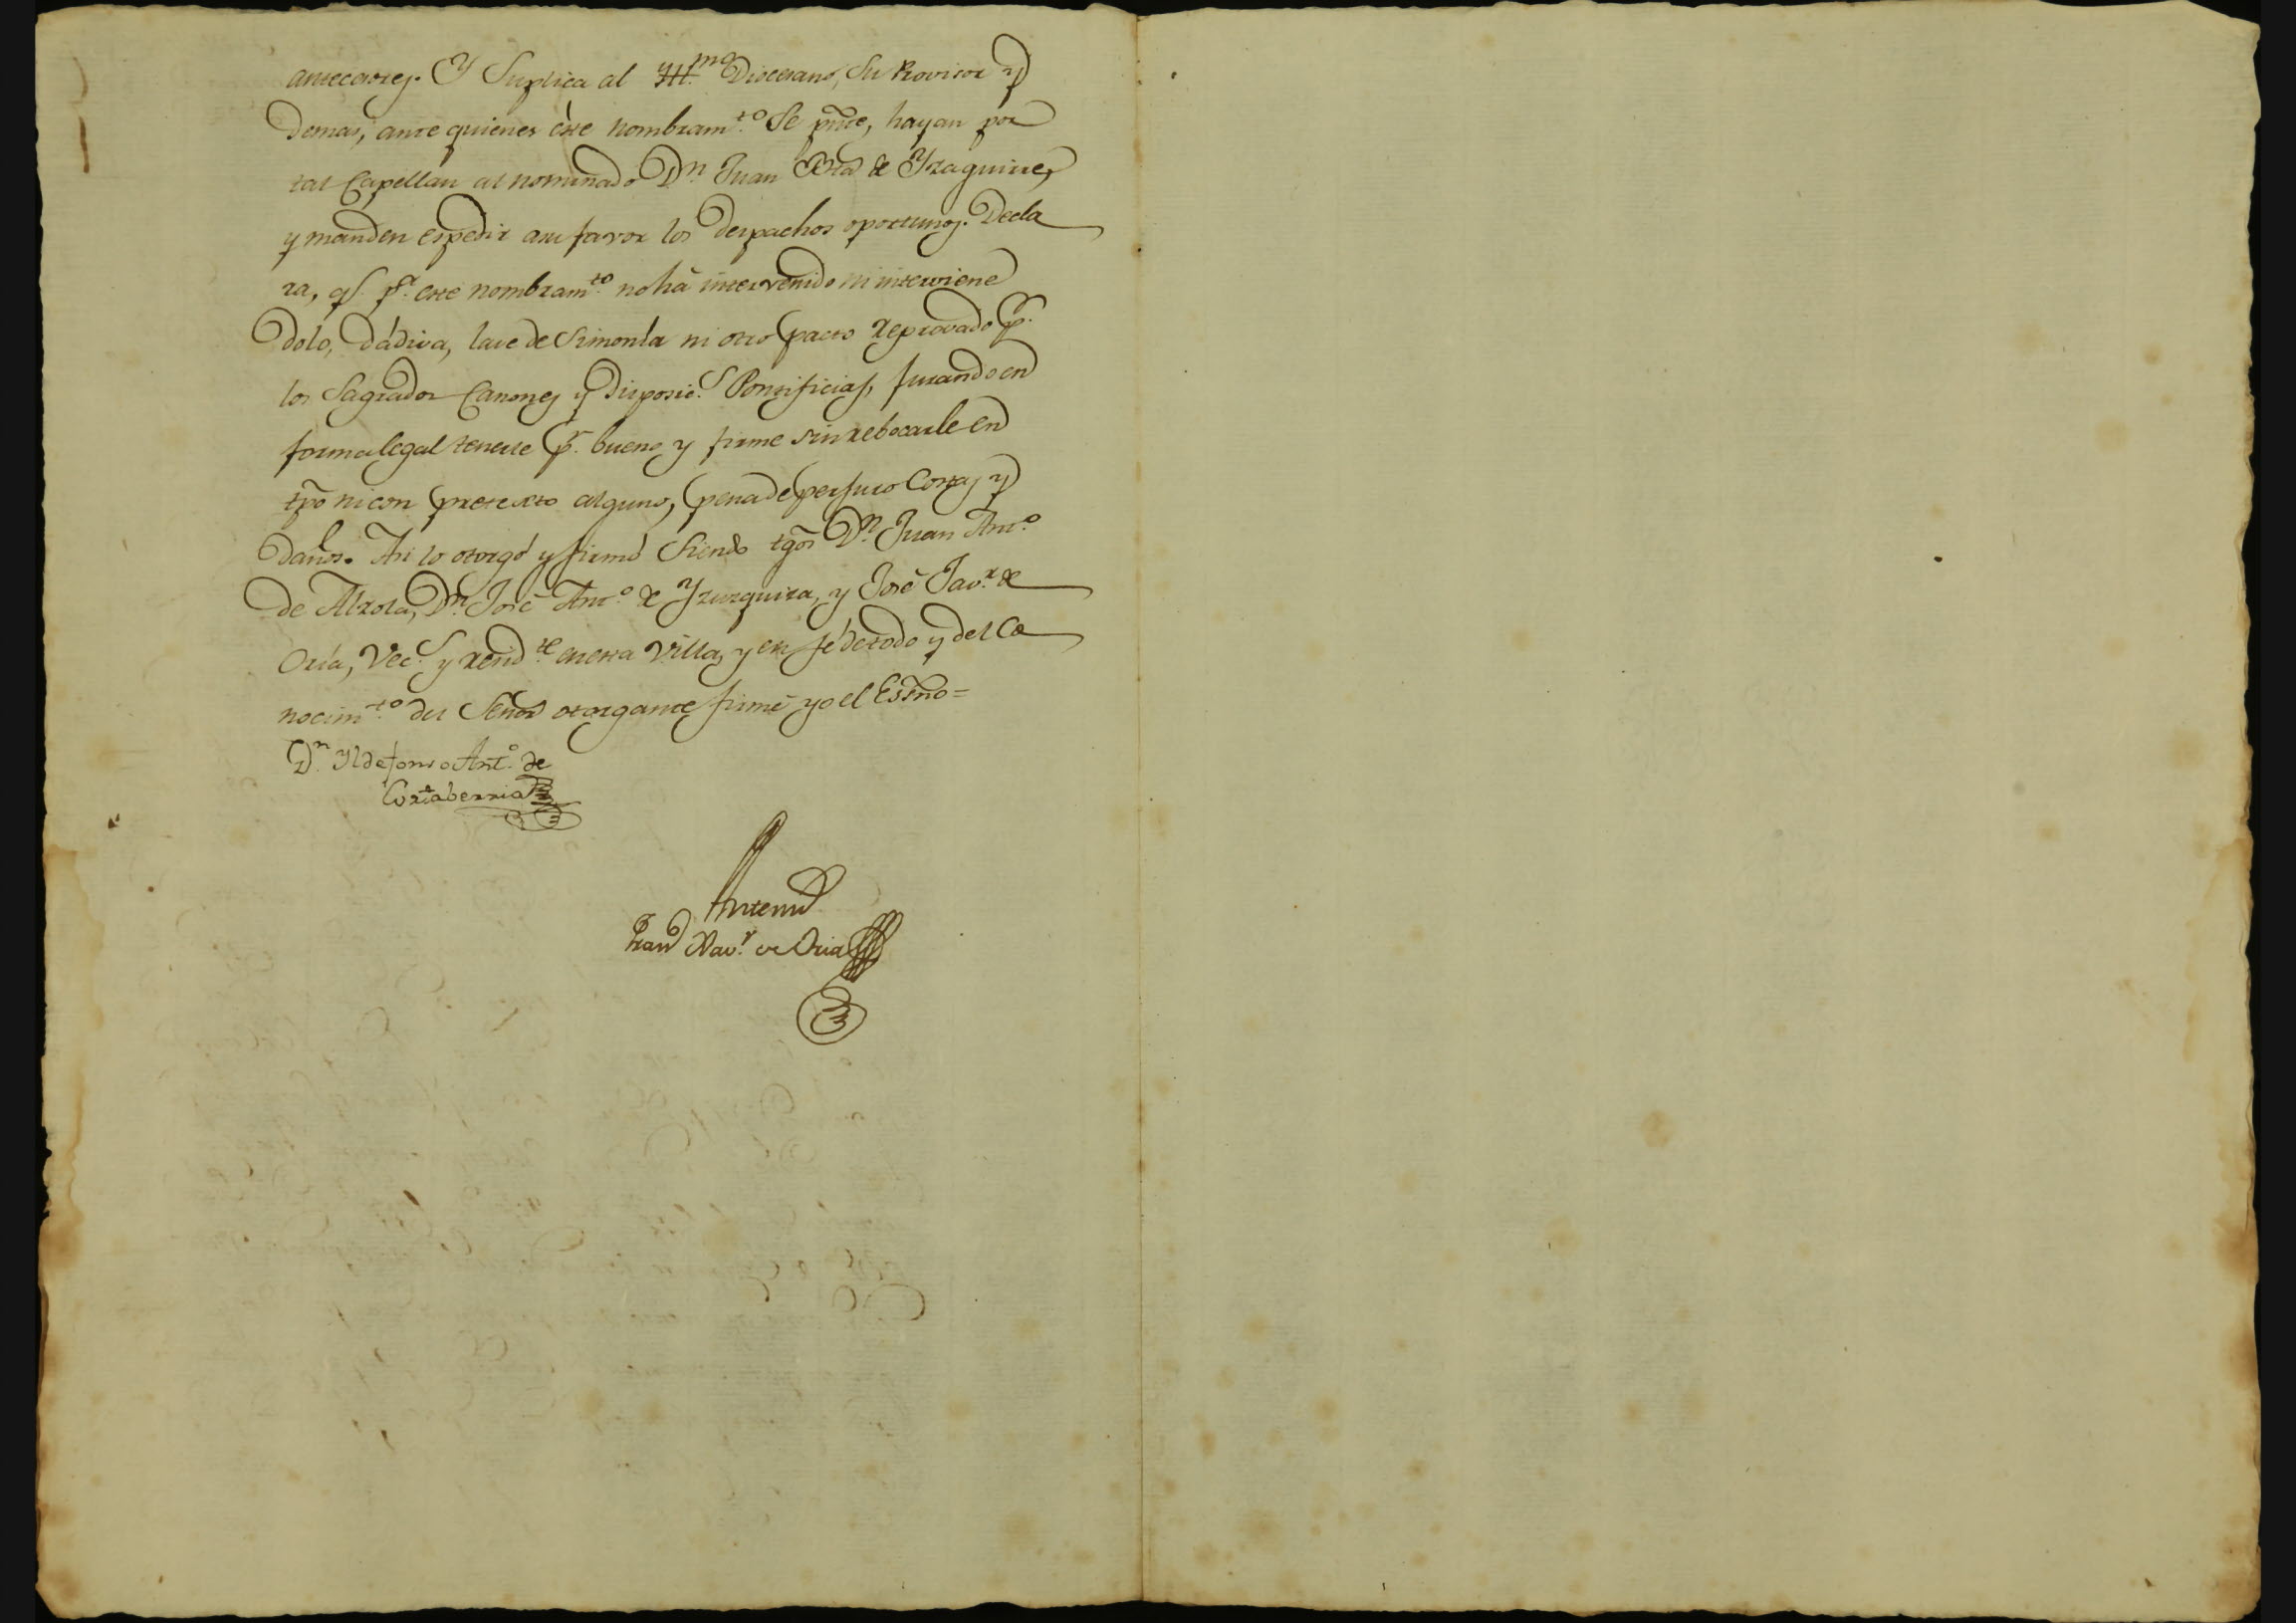 antecesores. Y Suplica al Yll.mo Diocesano, Su Provisor y
demas, ante quienes este nombram.to Se pñte, hayan por
tal Capellan al nominado D.n Juan Bta de Yzaguirre,
y manden espedir asu favor los despachos oportunos. Decla
ra, q.e p.r este nombram.to no há intervenido ni interviene
dolo, dádiva, lave de Simonía ni otro pacto reprovado p.r
los Sagrados Canones y disposic.s Pontificias, jurando en
forma legal tenerle p.r bueno y firme sin rebocarle en
tpõ ni con pretexto alguno, pena de perjuro Costas y
daños. Asi lo otorgó y firmó Siendo tgõs D.n Juan Ant.o
de Alzola, D.n José Ant.o de Yzurquiza, y José Jav.r de
Oria, Vec.s y resid.te en esta Villa, y en fé de todo y del Co
nocim.to del Señor otorgante firmé yo el Essño =
D.n Yldefonso Ant.o de
Cortaberria
Antemi
Fran.co Xav.r de Oria